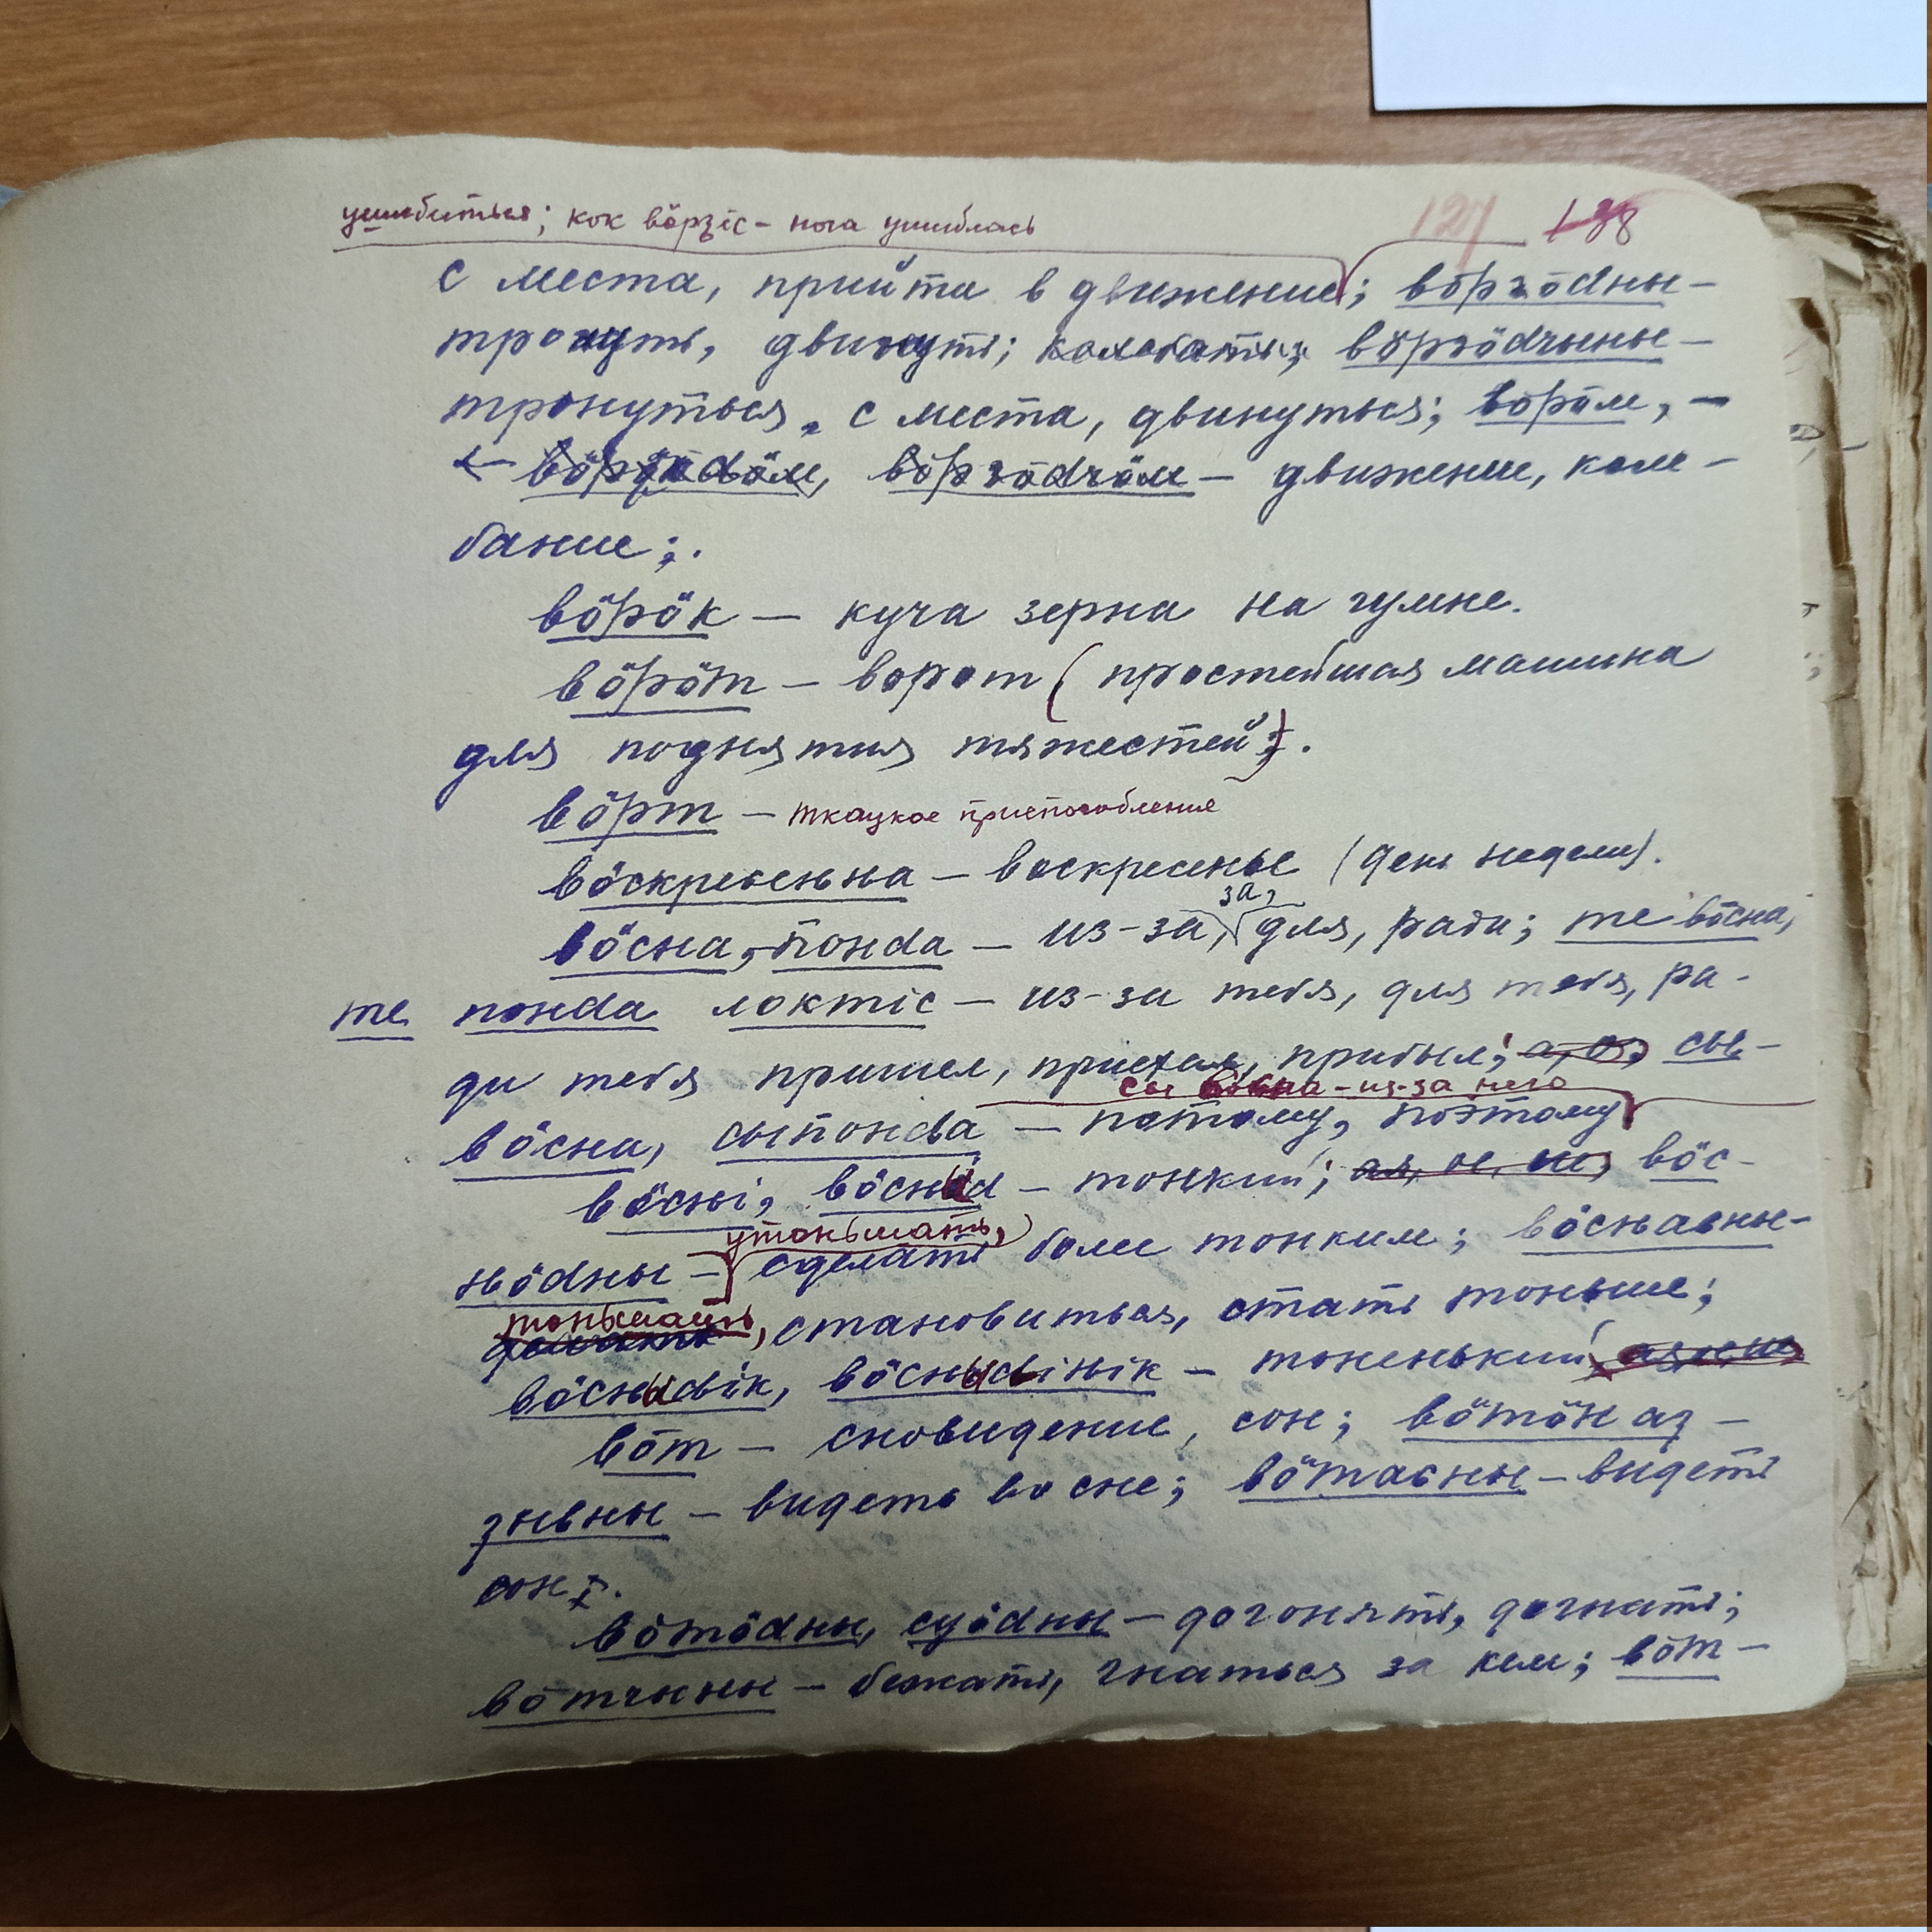 ушибиться; кок вӧрзіс – нога ушиблась
127 138
с места, прийти в движение; вӧрзӧdны –
тронуть, двинуть; вӧрзӧdчыны –
тронуться с места, двинуться; вӧрӧм, –
вӧрзӧdӧм, вӧрзӧdчӧм – движение, коле –
бание;.
вӧрӧк – куча зерна на гумне.
вӧрӧт – ворот (простейшая машина
для поднятия тяжестей).
вӧрт – ткацкое приспособление
вӧскресенња – воскресенье (день недели).
за,
вӧсна, понdа – из-за, для, ради; те вӧсна,
те понdа локтіс – из-за тебя, для тебя, ра-
ди тебя пришел, приехал, прибыл; сы –
сы вӧсна – из-за него
вӧсна, сыпонdа – потому, поэтому
вӧсњі, вӧсњыd – тонкий; вӧс –
утоньшать,
њӧdны – сделать более тонким; вӧсњавны –
тоньшать,
становиться, стать тоньше;
вӧсњыdік, вӧсњыdіњік – тоненький
вӧт – сновидение, сон; вӧтӧн аз –
зывны – видеть во сне; вӧтасны – видеть
сон.
вӧтӧdны, суӧdны – догонять, догнать;
вӧтчыны – бежать, гнаться за кем; вӧт –